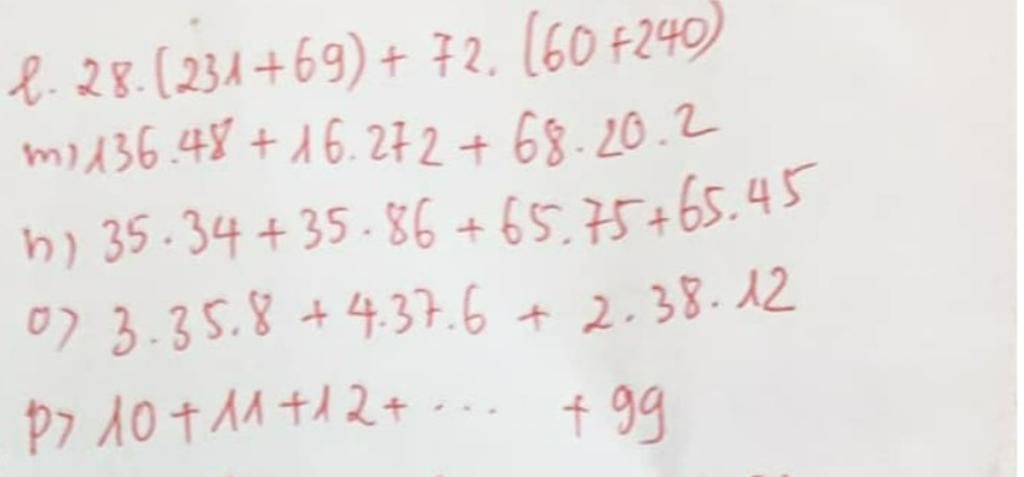 l. 28.(231+69) + 72. (60+240)
m) 136.48 + 16.272 + 68.20.2
n) 35.34 + 35.86 + 65.75 + 65.45
o) 3.35.8 + 4.37.6 + 2.38.12
p) 10 + 11 + 12 + ... + 99